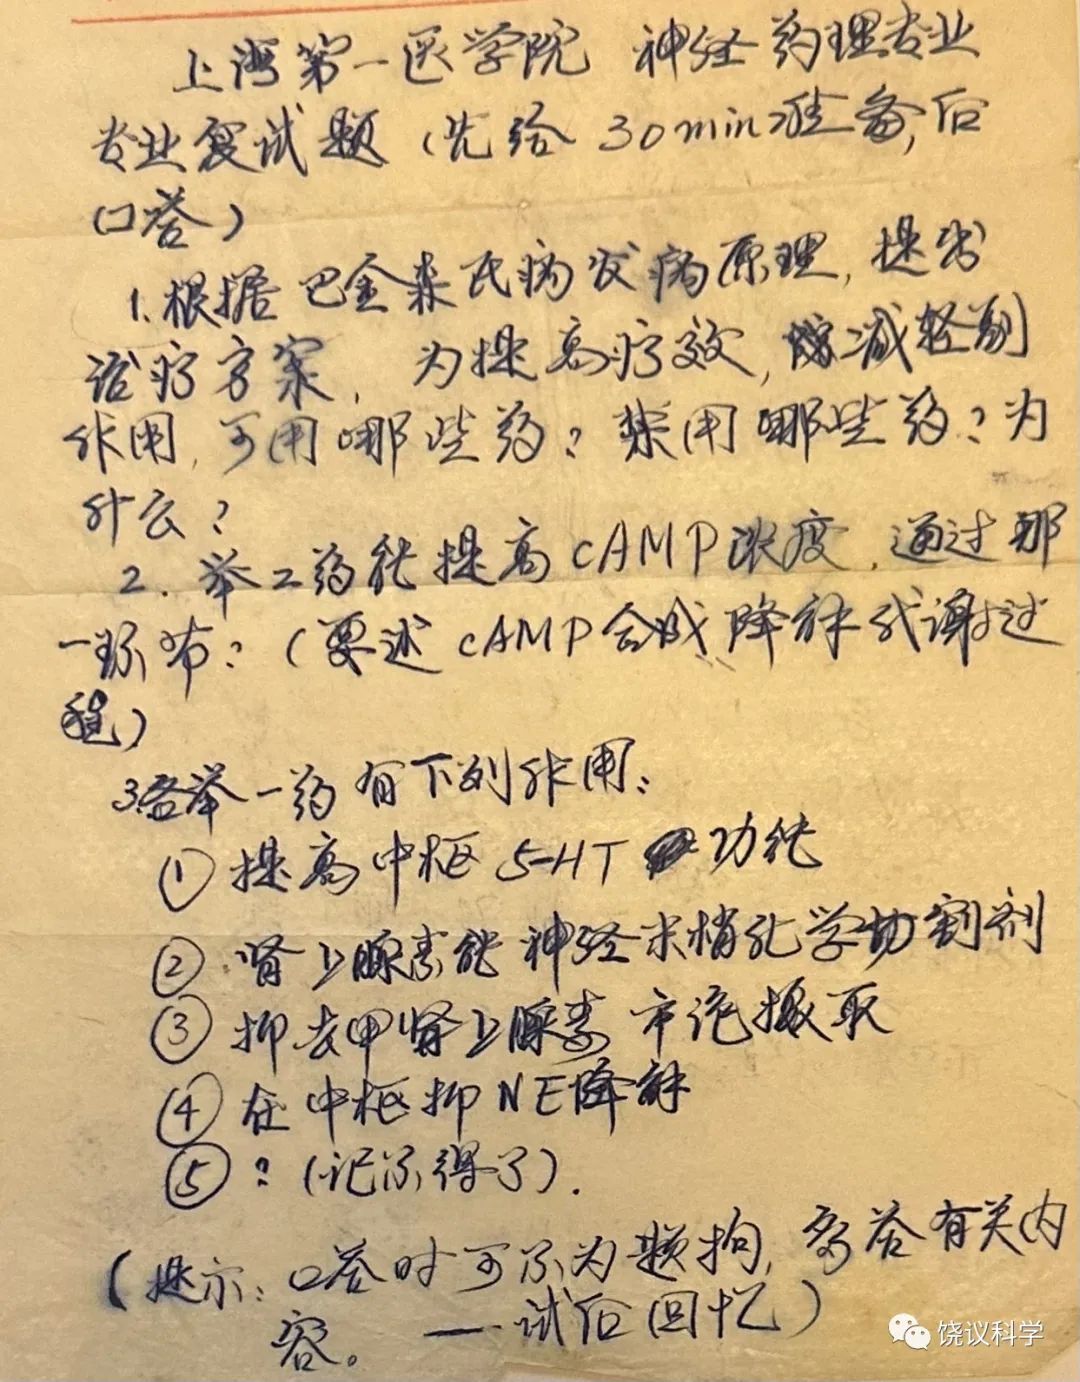 上海第一医学院 神经药理专业
专业复试题（先给30min准备,后
口答）
1.根据巴金森氏病发病原理,提出
治疗方案, 为提高疗效,减轻副
作用,可用哪些药?禁用哪些药?为
什么?
2.举二药能提高cAMP浓度,通过那
一环节?(要述cAMP合成降解代谢过
程)
3.各举一药有下列作用:
①提高中枢5-HT功能
②肾上腺素能神经末梢化学切割剂
③抑去甲肾上腺素再摄取
④在中枢抑NE降解
⑤?(记不得了).
(提示:口答时可不为题拘,多答有关内
容。 ——试后回忆)
饶议科学